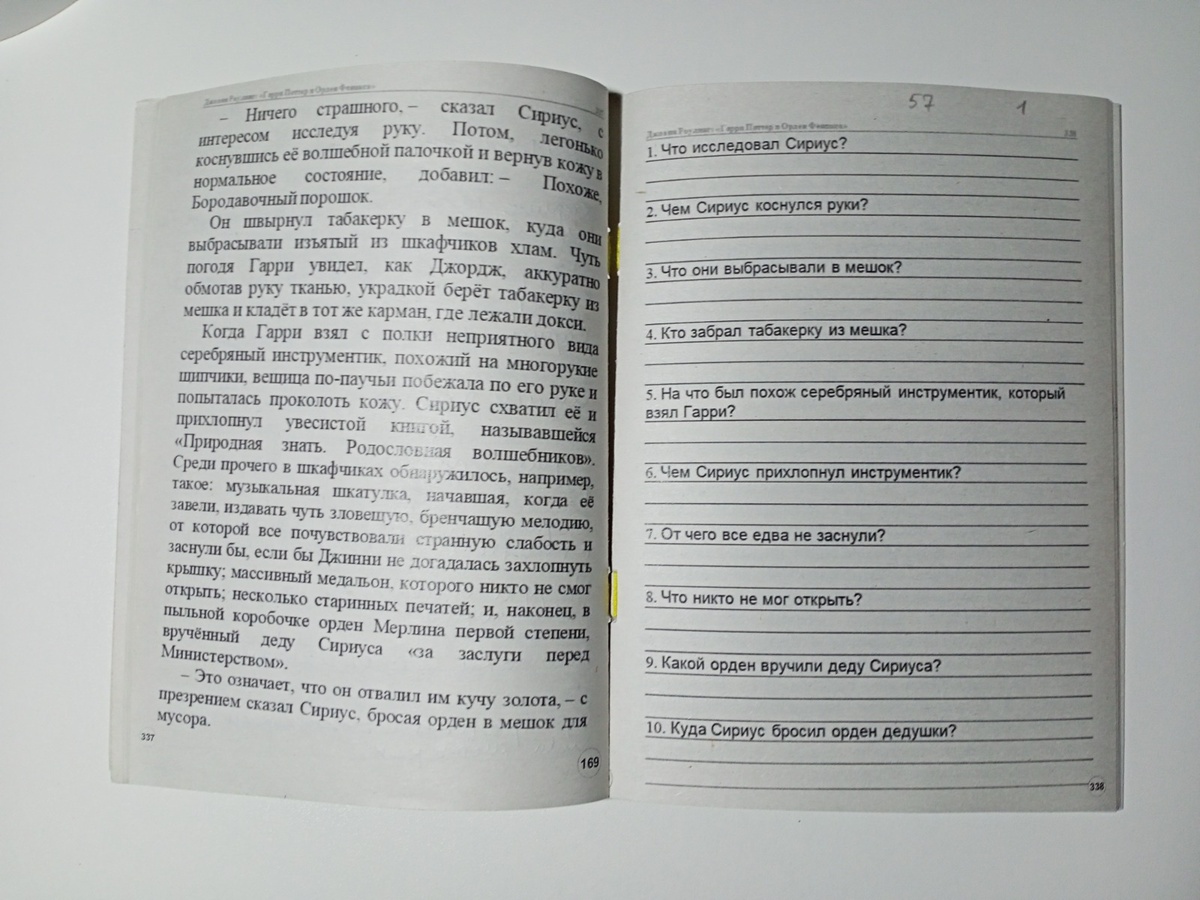 Джоан Роулинг: «Гарри Поттер и Орден Феникса»
– Ничего страшного, – сказал Сириус, с
интересом исследуя руку. Потом, легонько
коснувшись её волшебной палочкой и вернув кожу в
нормальное состояние, добавил: – Похоже,
Бородавочный порошок.
Он швырнул табакерку в мешок, куда они
выбрасывали изъятый из шкафчиков хлам. Чуть
погодя Гарри увидел, как Джордж, аккуратно
обмотав руку тканью, украдкой берёт табакерку из
мешка и кладёт в тот же карман, где лежали докси.
Когда Гарри взял с полки неприятного вида
серебряный инструментик, похожий на многорукие
щипчики, вещица по-паучьи побежала по его руке и
попыталась проколоть кожу. Сириус схватил её и
прихлопнул увесистой книгой, называвшейся
«Природная знать. Родословная волшебников».
Среди прочего в шкафчиках обнаружилось, например,
такое: музыкальная шкатулка, начавшая, когда её
завели, издавать чуть зловещую, бренчащую мелодию,
от которой все почувствовали странную слабость и
заснули бы, если бы Джинни не догадалась захлопнуть
крышку; массивный медальон, которого никто не смог
открыть; несколько старинных печатей; и, наконец, в
пыльной коробочке орден Мерлина первой степени,
вручённый деду Сириуса «за заслуги перед
Министерством».
– Это означает, что он отвалил им кучу золота, – с
презрением сказал Сириус, бросая орден в мешок для
мусора.
337
169
57 1
Джоан Роулинг: «Гарри Поттер и Орден Феникса»
1. Что исследовал Сириус?
2. Чем Сириус коснулся руки?
3. Что они выбрасывали в мешок?
4. Кто забрал табакерку из мешка?
5. На что был похож серебряный инструментик, который
взял Гарри?
6. Чем Сириус прихлопнул инструментик?
7. От чего все едва не заснули?
8. Что никто не мог открыть?
9. Какой орден вручили деду Сириуса?
10. Куда Сириус бросил орден дедушки?
338